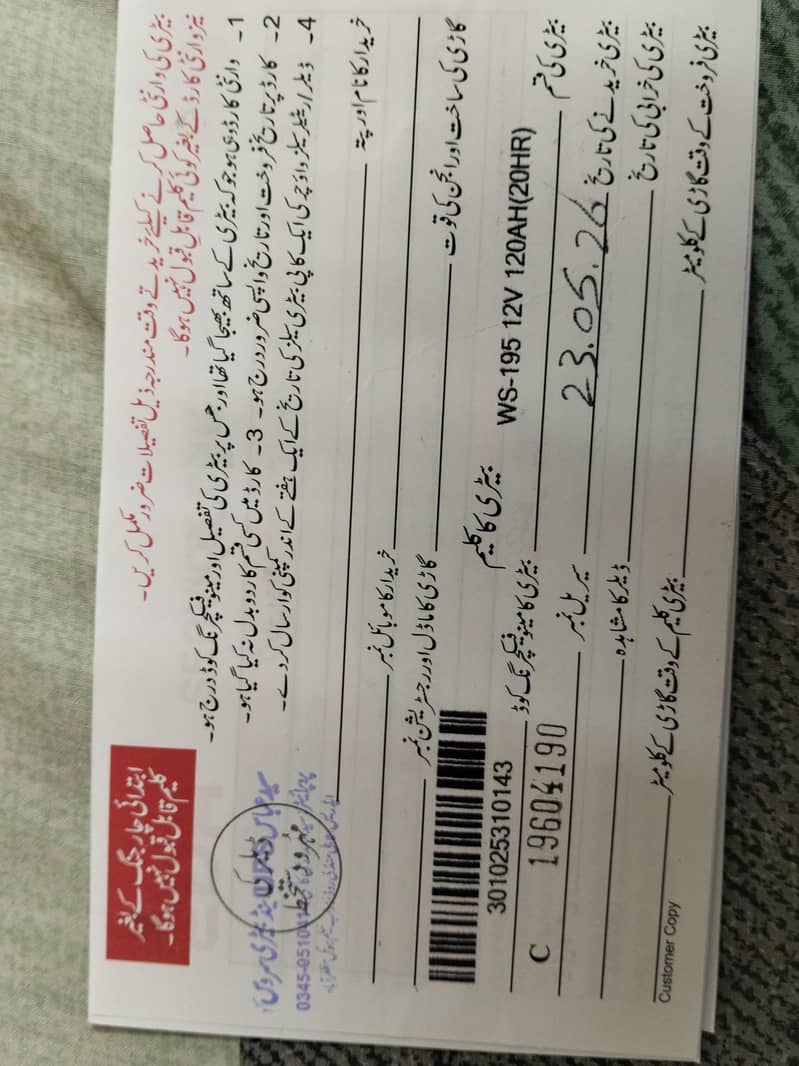 ابتدائی چارجنگ کے بغیر
کلیم قابل قبول نہیں ہوگا۔
بیٹری کی وارنٹی حاصل کرنے کیلئے خریدتے وقت مندرجہ ذیل تفصیلات ضرور مکمل کریں۔
نیز وارنٹی کارڈ کے بغیر کوئی کلیم قابل قبول نہیں ہوگا۔
1- وارنٹی کارڈ وہی ہو جو کہ بیٹری کے ساتھ بھیجا گیا تھا اور جس پر بیٹری کی تفصیل اور مینوفیکچرنگ کوڈ درج ہو۔
2- کارڈ پر تاریخ فروخت اور تاریخ واپسی ضرور درج ہو۔ 3- کارڈ میں کسی قسم کا ردو بدل نہ کیا گیا ہو۔
4- ڈیلر اپنی سیلز واؤچر کی ایک کاپی بیٹری سیلز کی تاریخ کے ایک ہفتے کے اندر کمپنی کو ارسال کر دے۔
ڈیلر کی
مہر و دستخط
خریدار کا نام اور پتہ
خریدار کا موبائل نمبر
گاڑی کی ساخت اور انجن کی قوت
گاڑی کا ماڈل اور رجسٹریشن نمبر
بیٹری کا کلیم
301025310143
بیٹری کی قسم WS-195 12V 120AH(20HR)
بیٹری کا مینوفیکچرنگ کوڈ C 19604190
بیٹری خریدنے کی تاریخ 23.05.26
سیریل نمبر
بیٹری کی خرابی کی تاریخ
ڈیلر کا مشاہدہ
بیٹری فروخت کے وقت گاڑی کے کلومیٹر
بیٹری کلیم کے وقت گاڑی کے کلومیٹر
Customer Copy